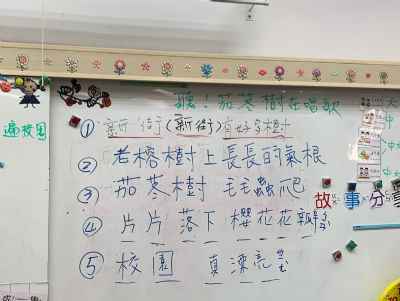 聽!茄苳樹在唱歌
遊校園
①新街(新街)有好多樹
②老榕樹上長長的氣根
③茄苳樹 毛毛蟲爬
④片片落下櫻花花瓣
⑤校園 真漂亮
故事分享